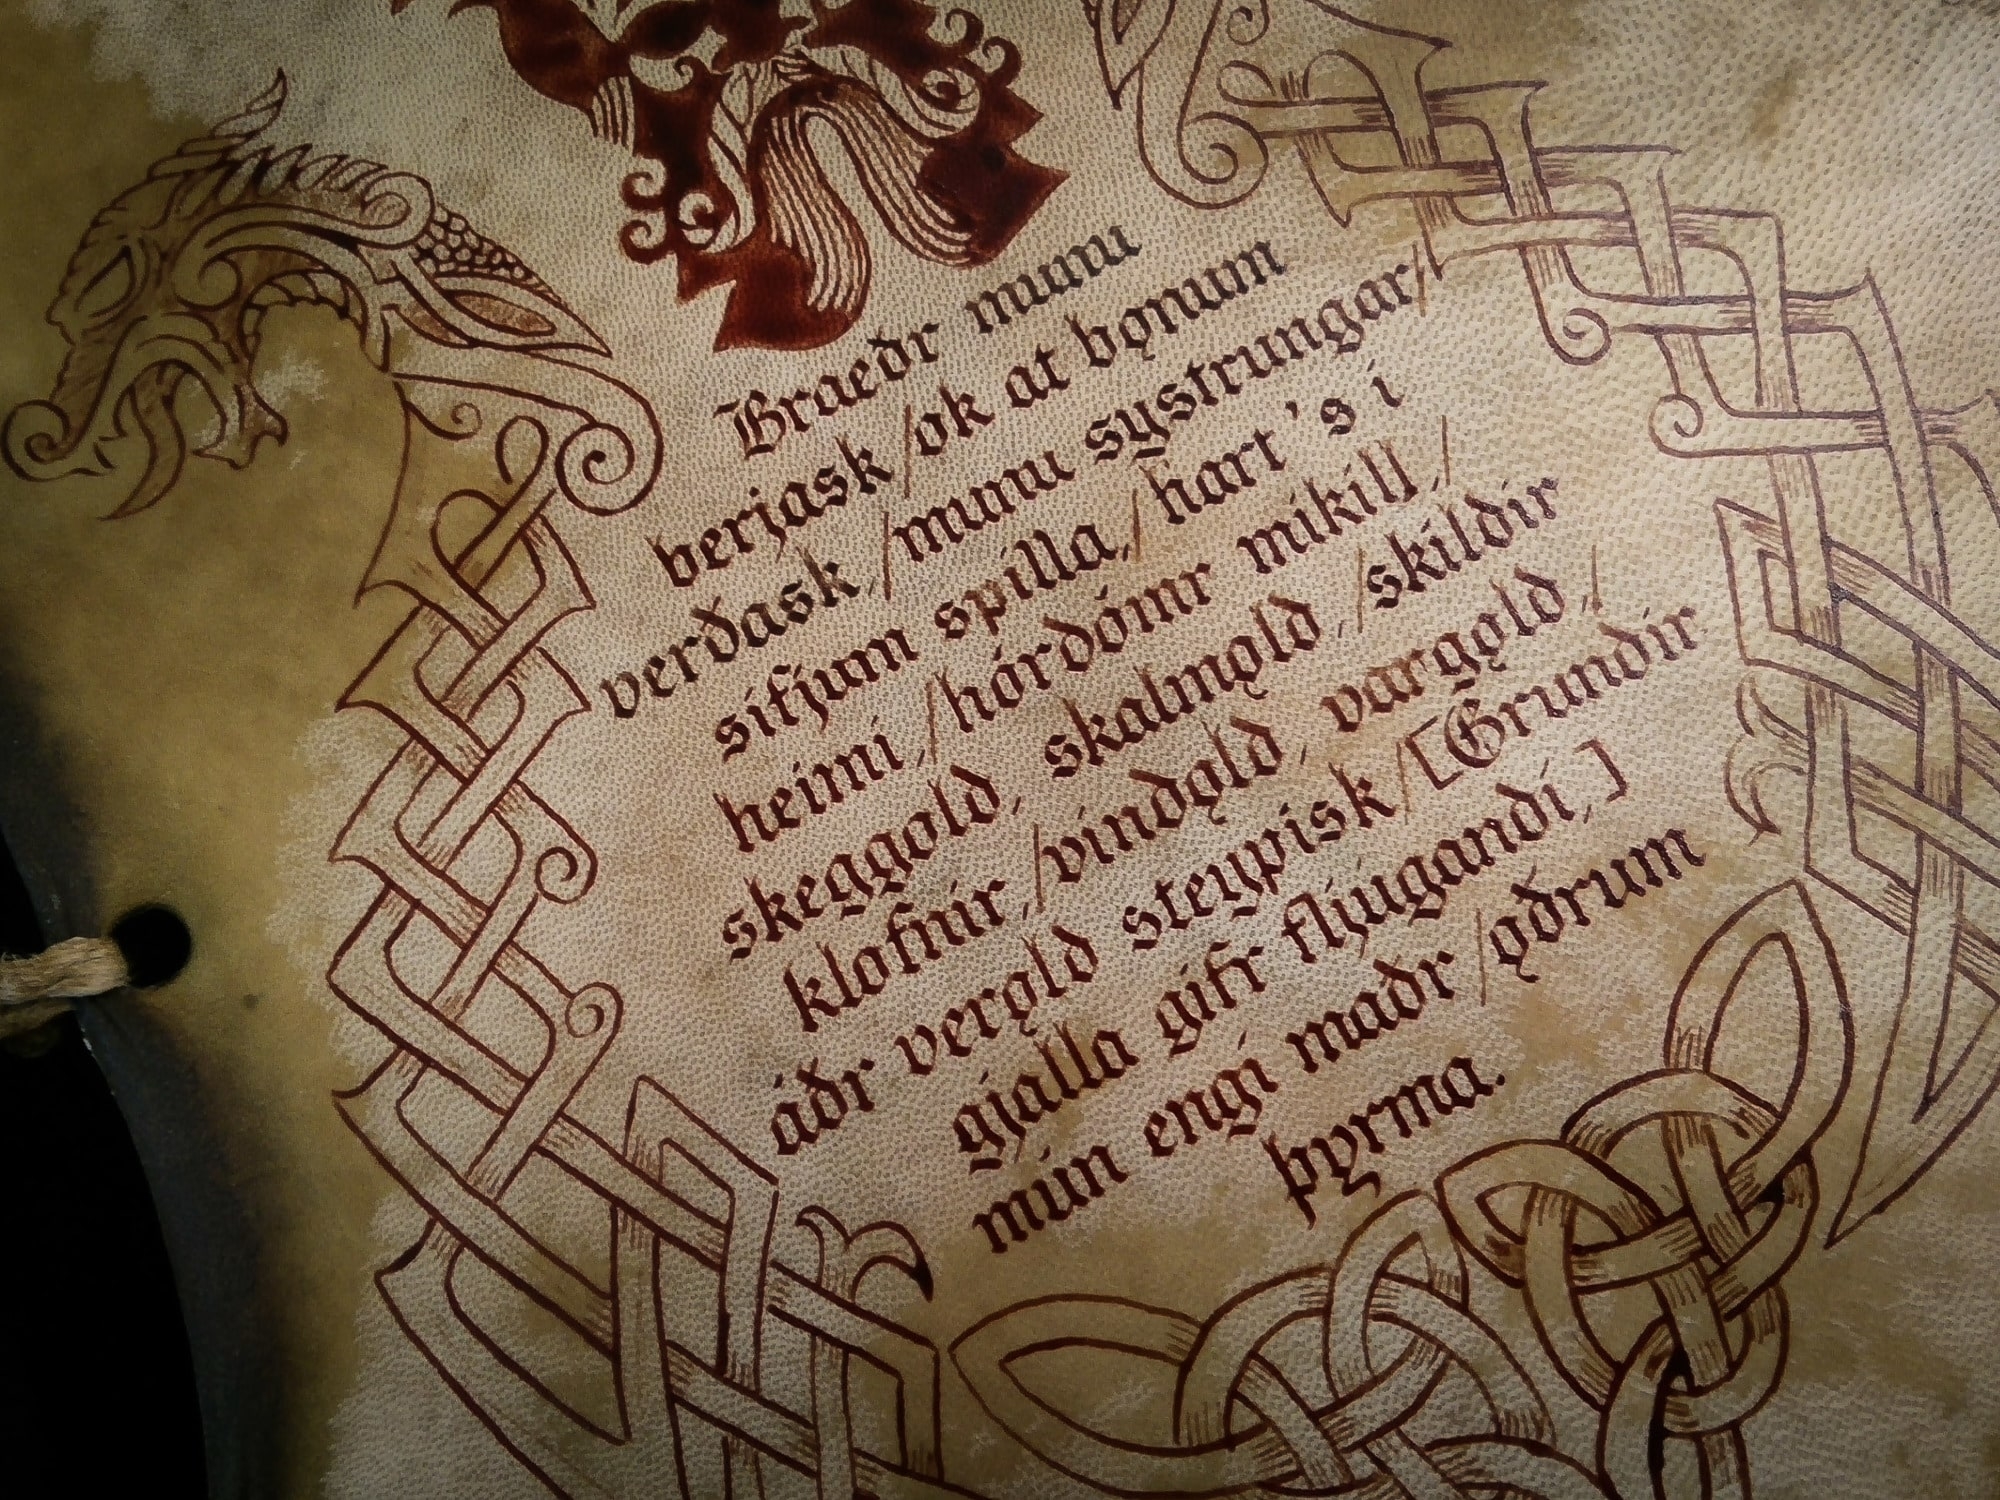 Braeðr munu
berjask / ok at bǫnum
verðask, / munu systrungar /
sifjum spilla, / hart's í
heimi, / hórdómr mikill, /
skeggǫld, skalmǫld, / skildir
klofnir, / vindǫld, vargǫld, /
áðr verǫld steypisk / [Grundir
gjalla gifr fljúgandi,]
mún engi maðr / ǫðrum
þyrma.